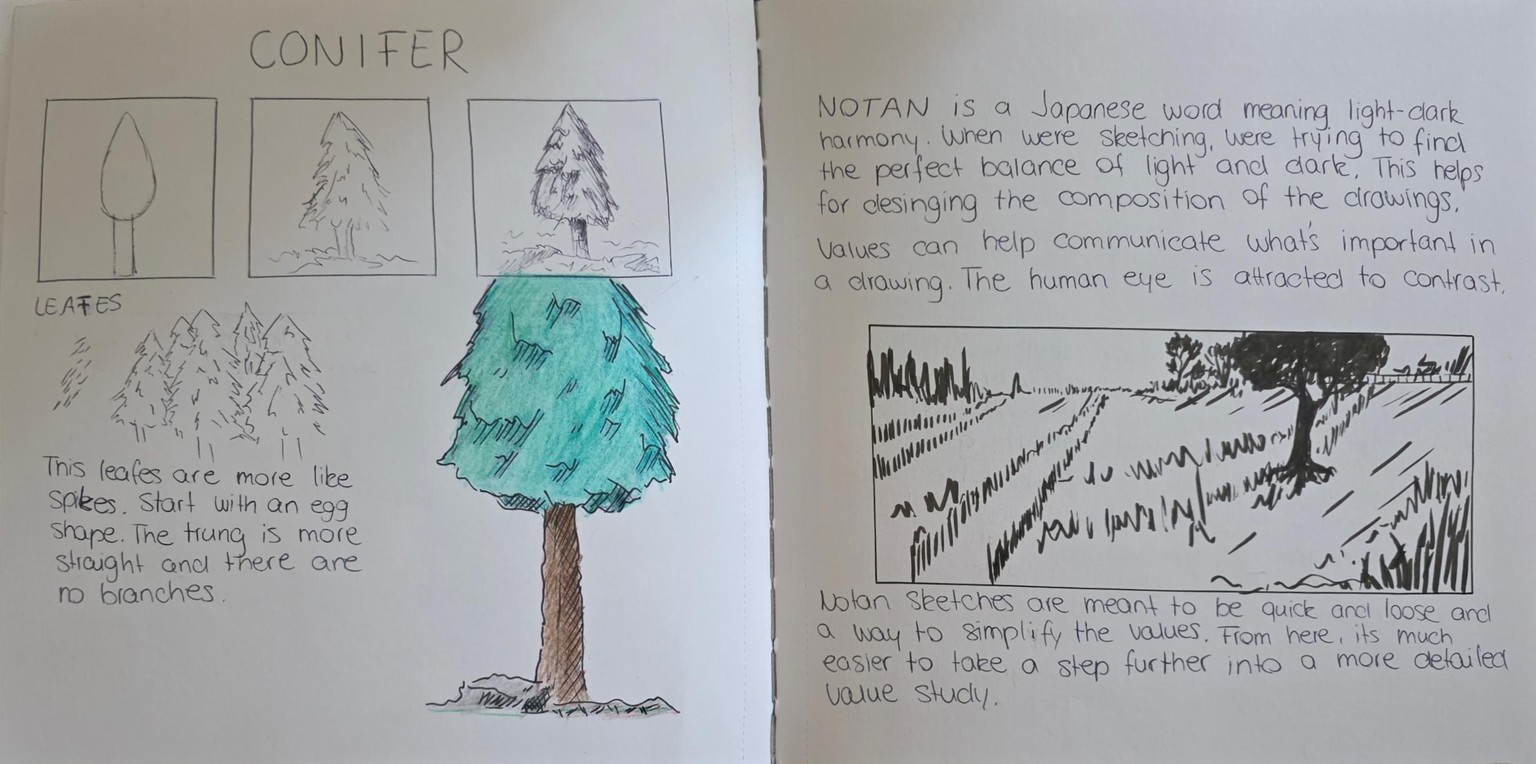 CONIFER
LEAFES
This leafes are more like
spikes. Start with an egg
shape. The trung is more
straight and there are
no branches.
NOTAN is a Japanese word meaning light-dark
harmony. When were sketching, were trying to find
the perfect balance of light and dark. This helps
for desinging the composition of the drawings.
Values can help communicate what's important in
a drawing. The human eye is attracted to contrast.
Notan sketches are meant to be quick and loose and
a way to simplify the values. From here, its much
easier to take a step further into a more detailed
value study.